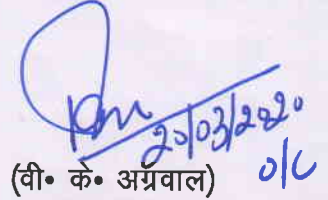 20/03/2020
(वी॰ के॰ अग्रवाल) o/c